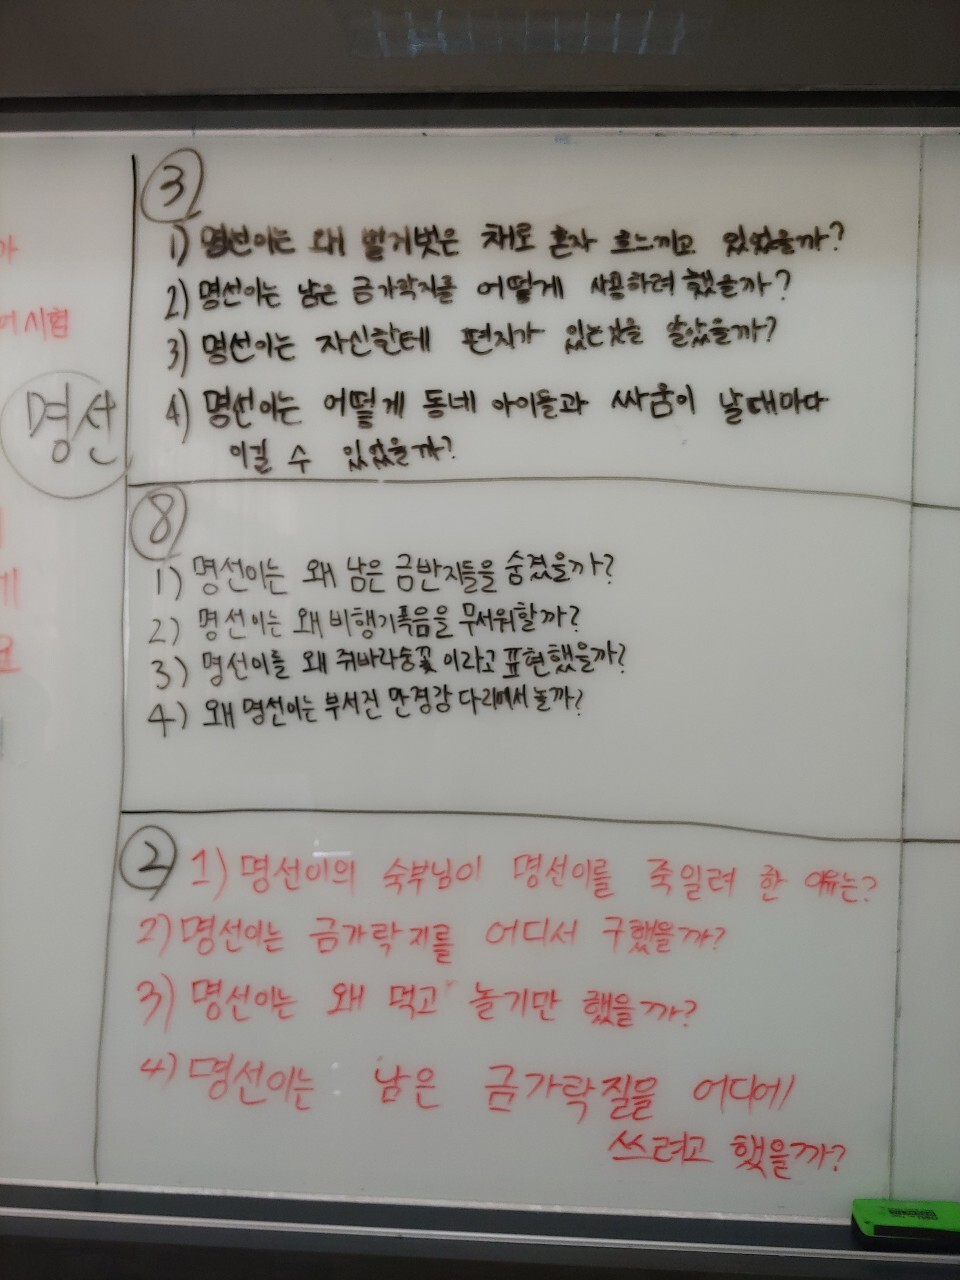 어시험
명선
③
1) 명선이는 왜 발가벗은 채로 혼자 흐느끼고 있었을까?
2) 명선이는 남은 금가락지를 어떻게 사용하려 했을까?
3) 명선이는 자신한테 편지가 있는것을 알았을까?
4) 명선이는 어떻게 동네 아이들과 싸움이 날때마다
이길 수 있었을까?
⑧
1) 명선이는 왜 남은 금반지들을 숨겼을까?
2) 명선이는 왜 비행기폭음을 무서워할까?
3) 명선이를 왜 쥐바라숭꽃이라고 표현했을까?
4) 왜 명선이는 부서진 만경강 다리에서 놀까?
②
1) 명선이의 숙부님이 명선이를 죽일려 한 이유는?
2) 명선이는 금가락지를 어디서 구했을까?
3) 명선이는 왜 먹고 놀기만 했을까?
4) 명선이는 남은 금가락질을 어디에
쓰려고 했을까?